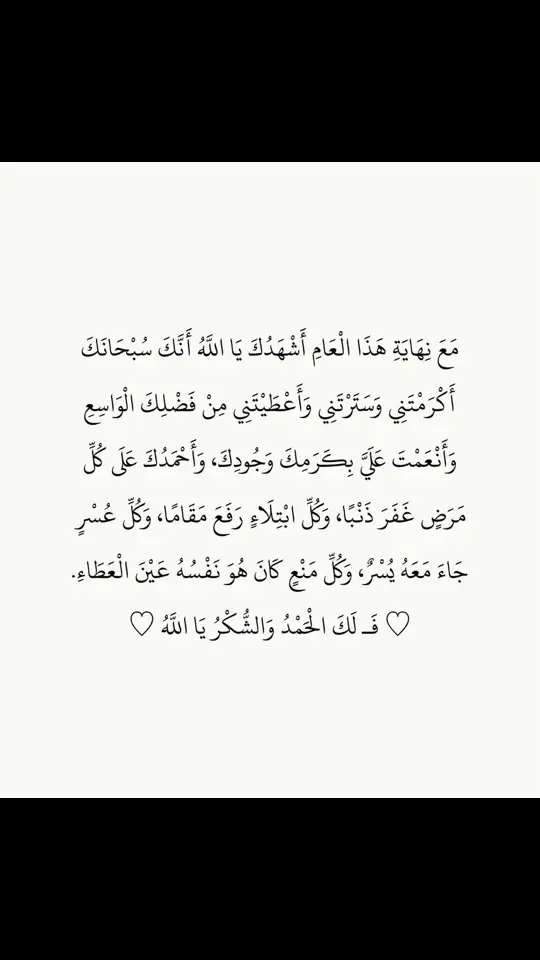 مَعَ نِهَايَةِ هَذَا الْعَامِ أَشْهَدُكَ يَا اللَّهُ أَنَّكَ سُبْحَانَكَ
أَكْرَمْتَنِي وَسَتَرْتَنِي وَأَعْطَيْتَنِي مِنْ فَضْلِكَ الْوَاسِعِ
وَأَنْعَمْتَ عَلَيَّ بِكَرَمِكَ وَجُودِكَ، وَأَحْمَدُكَ عَلَى كُلِّ
مَرَضٍ غَفَرَ ذَنْبًا، وَكُلِّ ابْتِلَاءٍ رَفَعَ مَقَامًا، وَكُلِّ عُسْرٍ
جَاءَ مَعَهُ يُسْرٌ، وَكُلِّ مَنْعٍ كَانَ هُوَ نَفْسُهُ عَيْنَ الْعَطَاءِ.
♡ فَـ لَكَ الْحَمْدُ وَالشُّكْرُ يَا اللَّهُ ♡